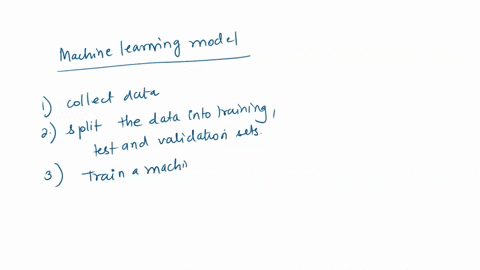 Machine learning model
1) collect data
2.) split the data into training,
test and validation sets.
3) Train a machi